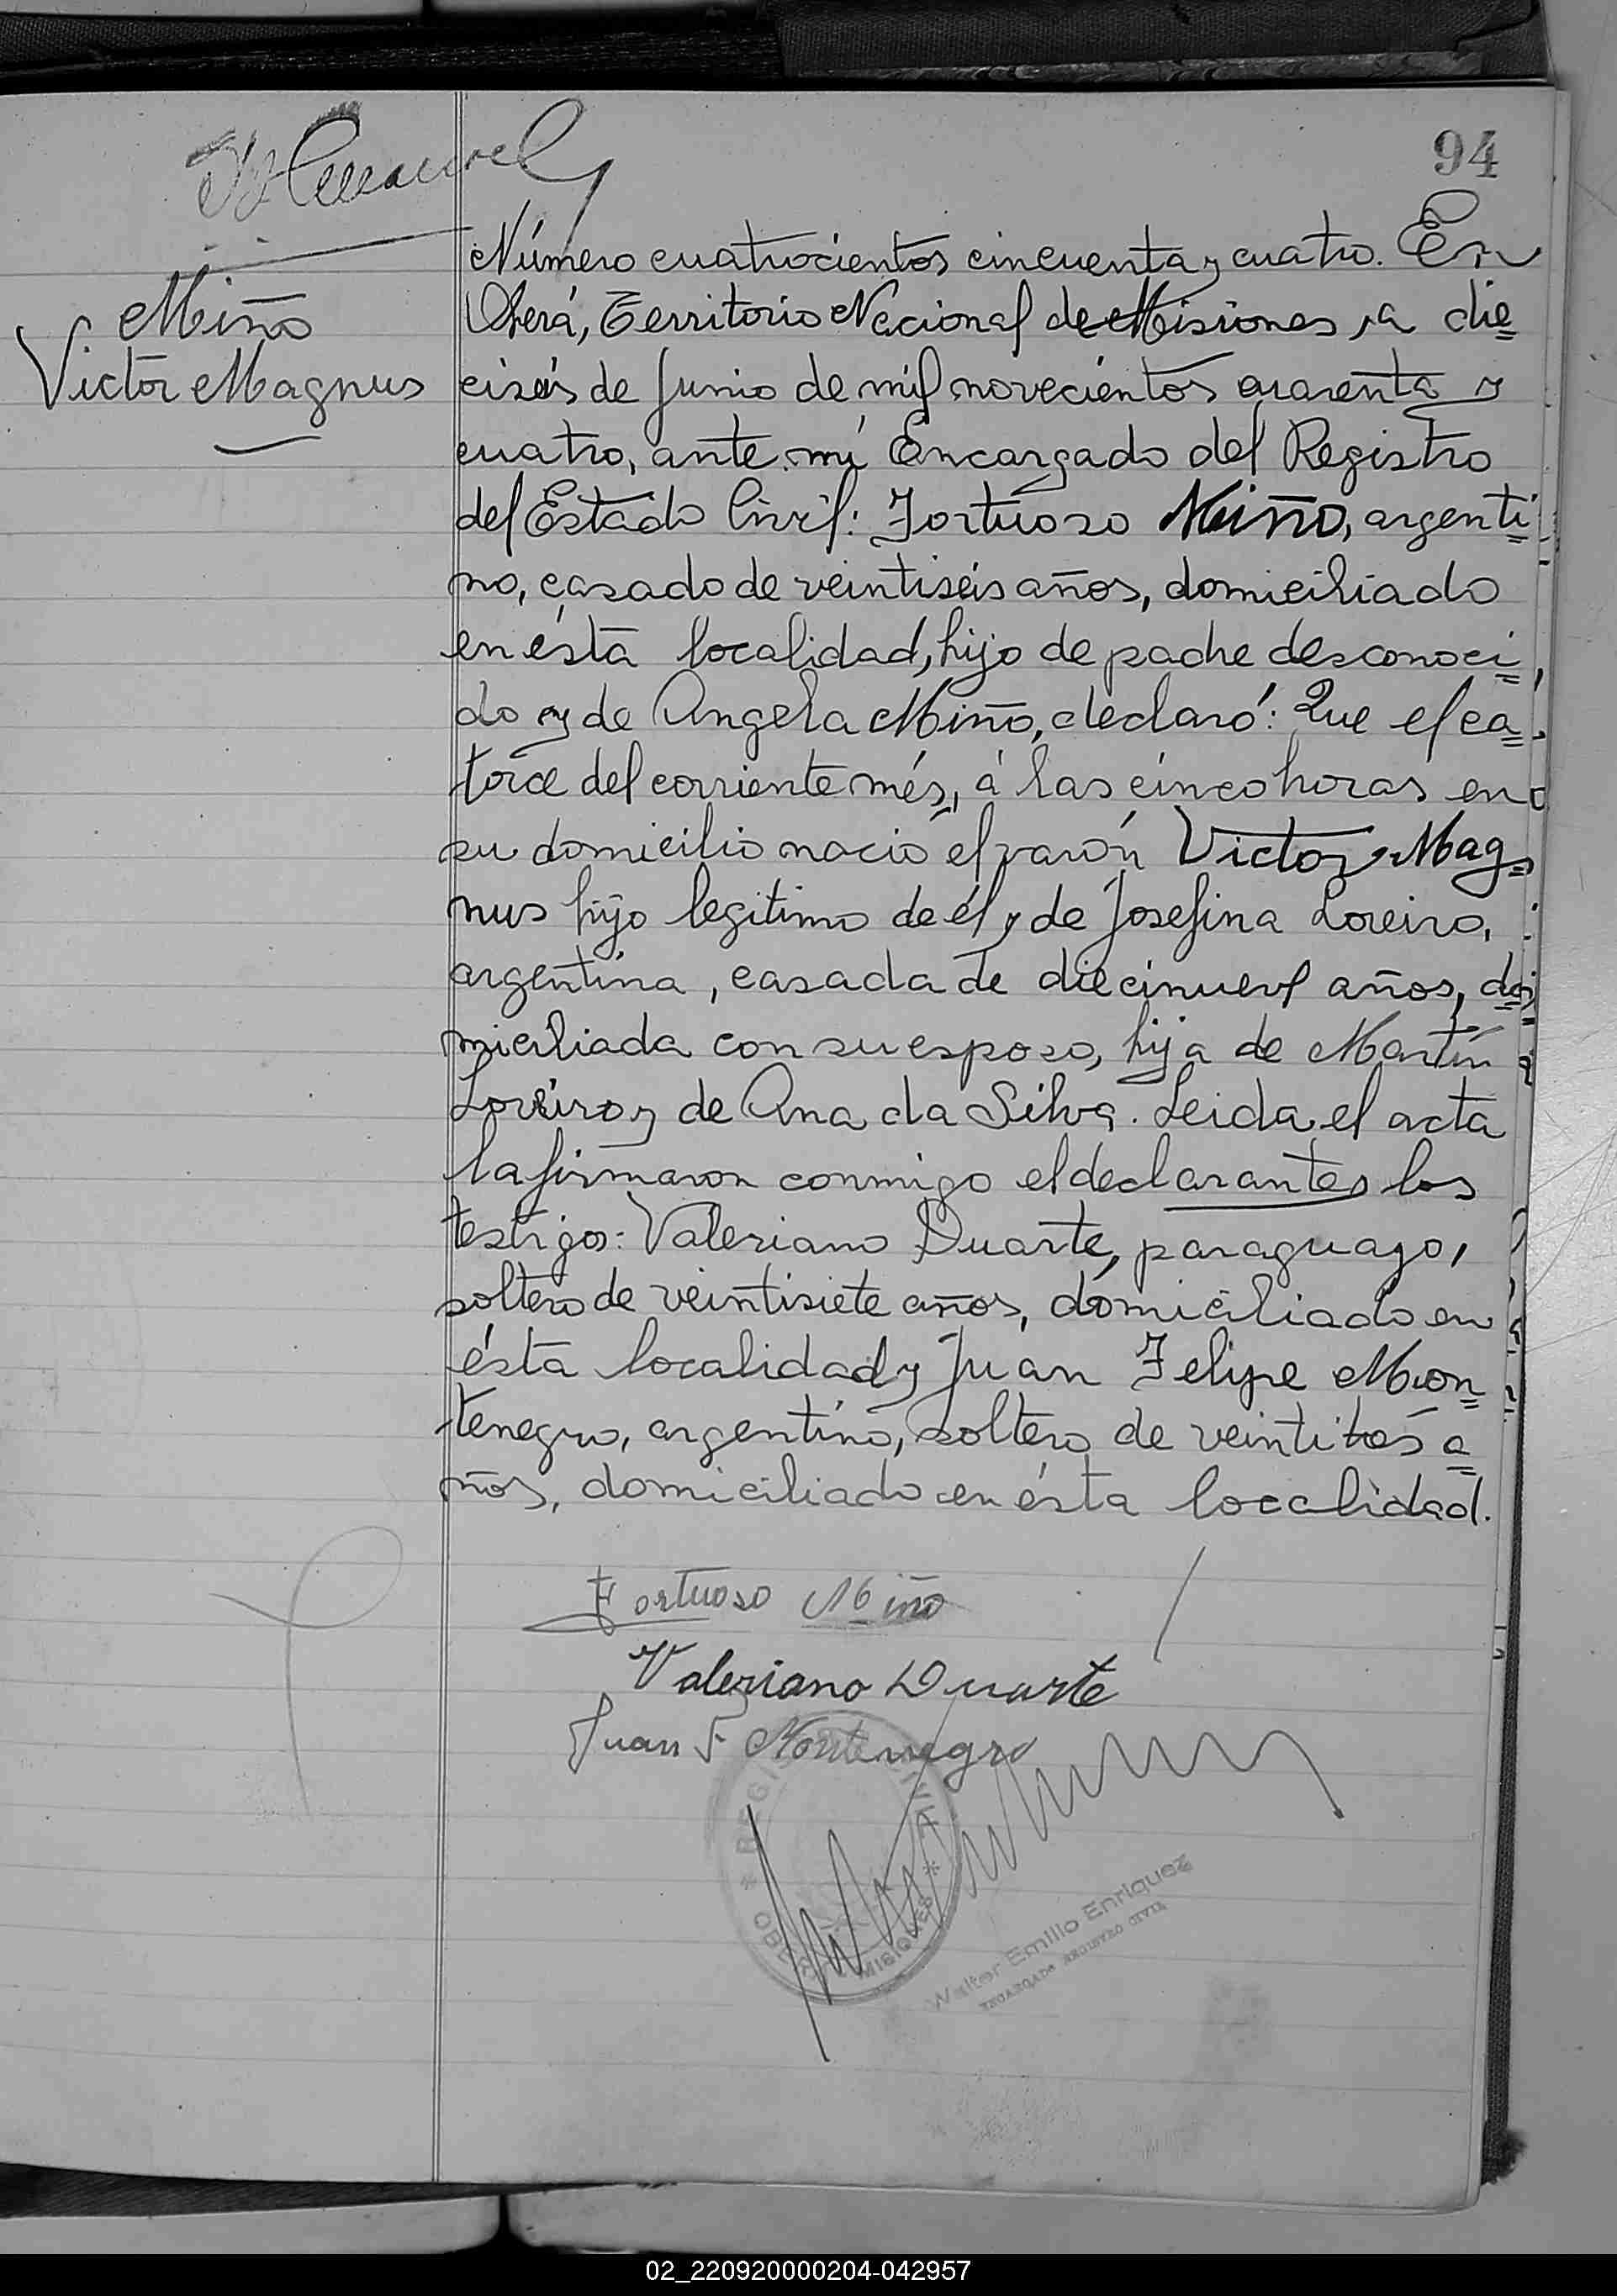 94
Miño
Victor Magnus
Número cuatrocientos cincuenta y cuatro. En
Oberá, Territorio Nacional de Misiones, a die=
ciséis de Junio de mil novecientos cuarenta y
cuatro, ante mí Encargado del Registro
del Estado Civil: Fortuoso Miño, argenti=
no, casado de veintiséis años, domiciliado
en ésta localidad, hijo de padre desconoci=
do y de Angela Miño, declaró: Que el ca=
torce del corriente més, á las cinco horas en
su domicilio nació el varón Victor Mag=
nus hijo legitimo de él y de Josefina Loreiro,
argentina, casada de diecinueve años, do=
miciliada con su esposo, hija de Martín
Loreiro y de Ana da Silva. Leida el acta
la firmaron conmigo el declarante y los
testigos: Valeriano Duarte, paraguayo,
soltero de veintisiete años, domiciliado en
ésta localidad y Juan Felipe Mon=
tenegro, argentino, soltero de veintitrés a=
ños, domiciliado en ésta localidad.
Fortuoso Miño
Valeriano Duarte
Juan F. Montenegro
OBERÁ MISIONES
Walter Emilio Enriquez
ENCARGADO REGISTRO CIVIL
02_220920000204-042957